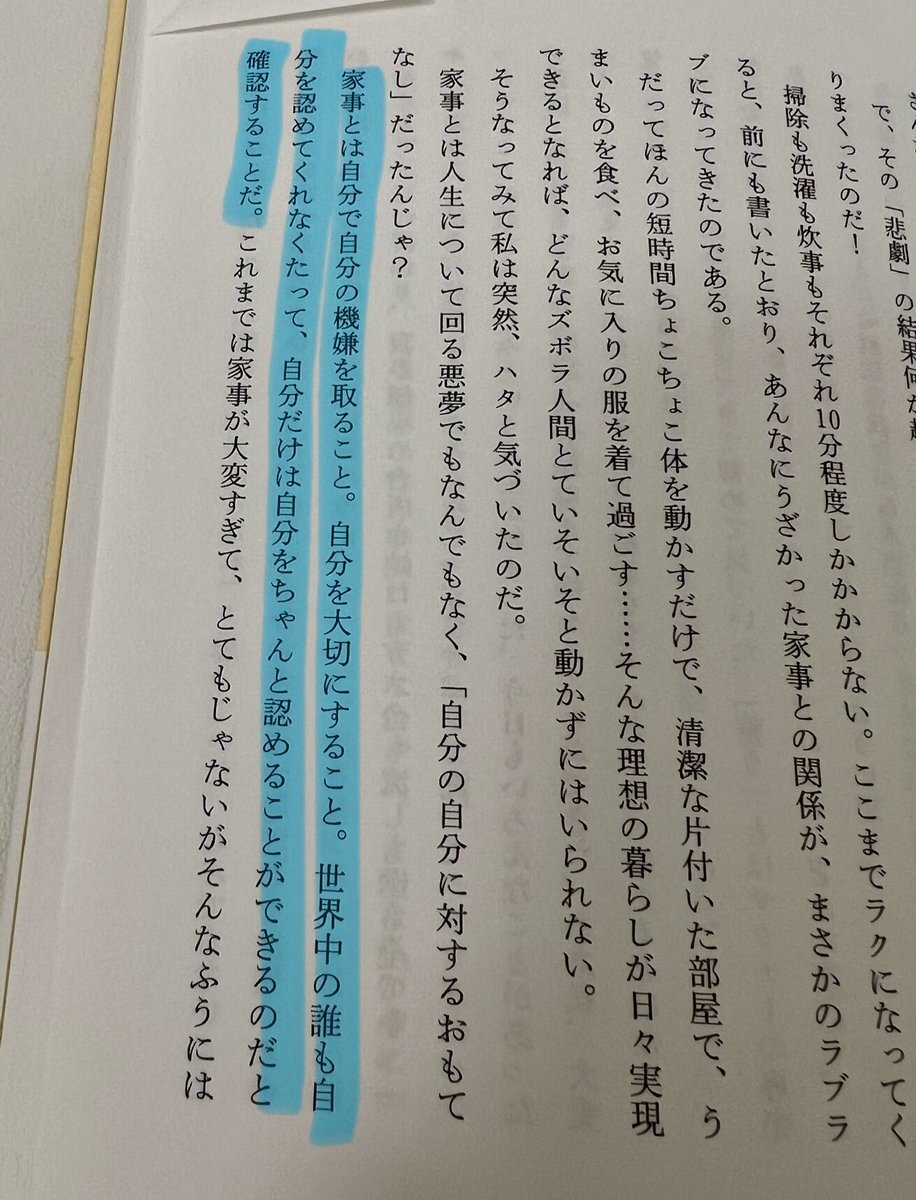 で、その「悲劇」の結果何が
りまくったのだ！
掃除も洗濯も炊事もそれぞれ10分程度しかかからない。ここまでラクになってく
ると、前にも書いたとおり、あんなにうざかった家事との関係が、まさかのラブラ
ブになってきたのである。
だってほんの短時間ちょこちょこ体を動かすだけで、清潔な片付いた部屋で、う
まいものを食べ、お気に入りの服を着て過ごす……そんな理想の暮らしが日々実現
できるとなれば、どんなズボラ人間とていそいそと動かずにはいられない。
そうなってみて私は突然、ハタと気づいたのだ。
家事とは人生について回る悪夢でもなんでもなく、「自分の自分に対するおもて
なし」だったんじゃ？
家事とは自分で自分の機嫌を取ること。自分を大切にすること。世界中の誰も自
分を認めてくれなくたって、自分だけは自分をちゃんと認めることができるのだと
確認することだ。これまでは家事が大変すぎて、とてもじゃないがそんなふうには